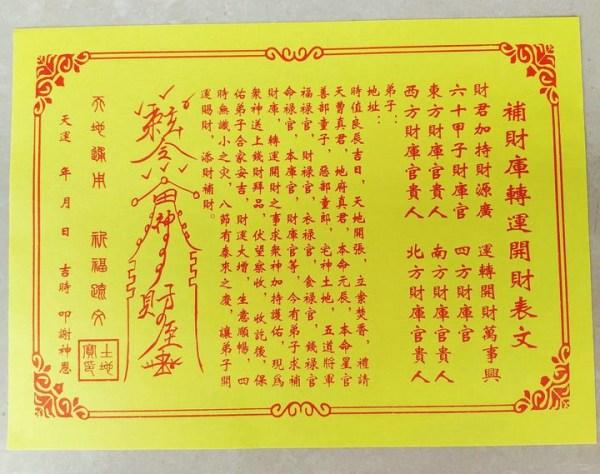 補財庫轉運開財表文
財君加持財源廣　運轉開財萬事興
六十甲子財庫官　四方財庫官
東方財庫官貴人　南方財庫官貴人
西方財庫官貴人　北方財庫官貴人
弟子：
地址：
時值良辰吉日，天地開張，立案焚香，禮請
天曹真君，地府真君，本命元辰，本命星官
善部童子，惡部童郎，宅神土地，五道將軍
福祿官，財祿官，衣祿官，食祿官，錢祿官
命祿官，本庫官，財庫官等，今有弟子求補
財庫，轉運開財之事求衆神加持護佑，現爲
衆神送上錢財拜品，伏望察收，收訖後，保
佑弟子合家安吉，財運大增，生意順暢，四
時無讖小之灾，八節有泰來之慶，讓弟子開
運賜財，添財補財。
天地通用　祈福疏文
天運　年　月　日　吉時　叩謝神恩
土地寶印